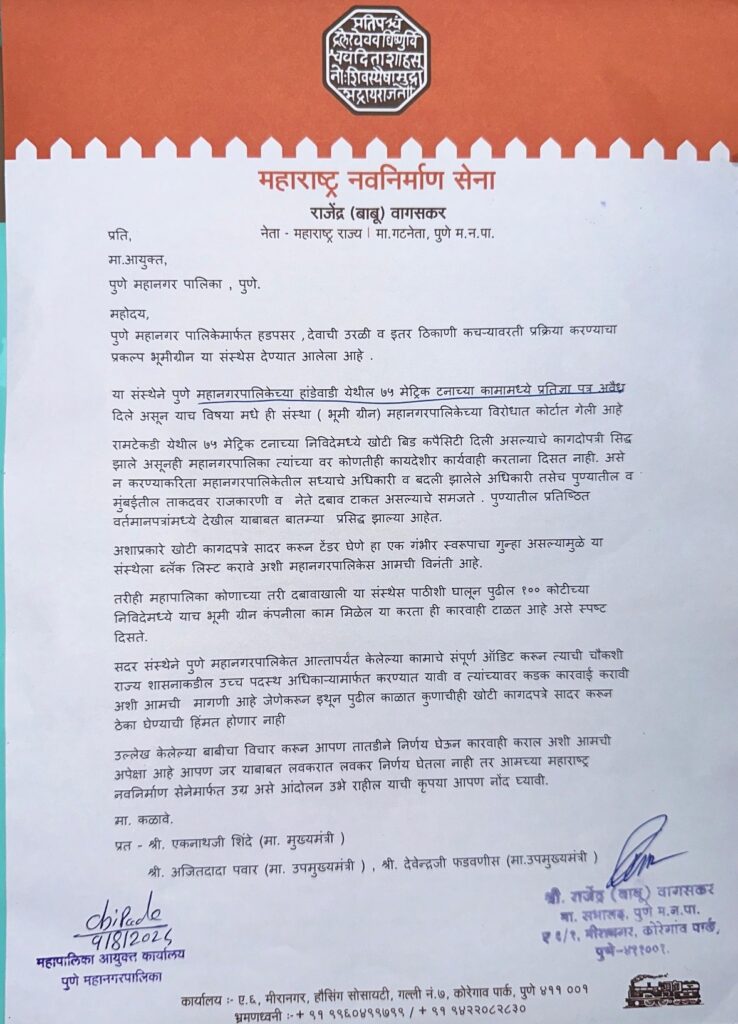 प्रतिपच्चं
द्रलेखेव वर्धिष्णुर्वि
श्ववंदिता शाहसू
नोः शिवस्यैषा मुद्रा
भद्राय राजते
महाराष्ट्र नवनिर्माण सेना
राजेंद्र (बाबू) वागसकर
नेता - महाराष्ट्र राज्य | मा.गटनेता, पुणे म.न.पा.
प्रति,
मा.आयुक्त,
पुणे महानगर पालिका , पुणे.
महोदय,
पुणे महानगर पालिकेमार्फत हडपसर ,देवाची उरळी व इतर ठिकाणी कचऱ्यावरती प्रक्रिया करण्याचा
प्रकल्प भूमीग्रीन या संस्थेस देण्यात आलेला आहे .
या संस्थेने पुणे महानगरपालिकेच्या हांडेवाडी येथील ७५ मेट्रिक टनाच्या कामामध्ये प्रतिज्ञा पत्र अवैध
दिले असून याच विषया मधे ही संस्था ( भूमी ग्रीन) महानगरपालिकेच्या विरोधात कोर्टात गेली आहे
रामटेकडी येथील ७५ मेट्रिक टनाच्या निविदेमध्ये खोटी बिड कपॅसिटी दिली असल्याचे कागदोपत्री सिद्ध
झाले असूनही महानगरपालिका त्यांच्या वर कोणतीही कायदेशीर कार्यवाही करताना दिसत नाही. असे
न करण्याकरिता महानगरपालिकेतील सध्याचे अधिकारी व बदली झालेले अधिकारी तसेच पुण्यातील व
मुंबईतील ताकदवर राजकारणी व नेते दबाव टाकत असल्याचे समजते . पुण्यातील प्रतिष्ठित
वर्तमानपत्रांमध्ये देखील याबाबत बातम्या प्रसिद्ध झाल्या आहेत.
अशाप्रकारे खोटी कागदपत्रे सादर करून टेंडर घेणे हा एक गंभीर स्वरूपाचा गुन्हा असल्यामुळे या
संस्थेला ब्लॅक लिस्ट करावे अशी महानगरपालिकेस आमची विनंती आहे.
तरीही महापालिका कोणाच्या तरी दबावाखाली या संस्थेस पाठीशी घालून पुढील १०० कोटीच्या
निविदेमध्ये याच भूमी ग्रीन कंपनीला काम मिळेल या करता ही कारवाही टाळत आहे असे स्पष्ट
दिसते.
सदर संस्थेने पुणे महानगरपालिकेत आत्तापर्यंत केलेल्या कामाचे संपूर्ण ऑडिट करून त्याची चौकशी
राज्य शासनाकडील उच्च पदस्थ अधिकाऱ्यामार्फत करण्यात यावी व त्यांच्यावर कडक कारवाई करावी
अशी आमची मागणी आहे जेणेकरून इथून पुढील काळात कुणाचीही खोटी कागदपत्रे सादर करून
ठेका घेण्याची हिंमत होणार नाही
उल्लेख केलेल्या बाबीचा विचार करून आपण तातडीने निर्णय घेऊन कारवाही कराल अशी आमची
अपेक्षा आहे आपण जर याबाबत लवकरात लवकर निर्णय घेतला नाही तर आमच्या महाराष्ट्र
नवनिर्माण सेनेमार्फत उग्र असे आंदोलन उभे राहील याची कृपया आपण नोंद घ्यावी.
मा. कळावे.
प्रत - श्री. एकनाथजी शिंदे (मा. मुख्यमंत्री )
श्री. अजितदादा पवार (मा. उपमुख्यमंत्री ) , श्री. देवेन्द्रजी फडवणीस (मा.उपमुख्यमंत्री )
श्री. राजेंद्र (बाबू) वागसकर
मा. सभासद, पुणे म.न.पा.
ए ६/१, मीरानगर, कोरेगांव पार्क,
पुणे-४११००१.
9/8/2024
महापालिका आयुक्त कार्यालय
पुणे महानगरपालिका
कार्यालय :- ए.६, मीरानगर, हौसिंग सोसायटी, गल्ली नं.७, कोरेगांव पार्क, पुणे ४११ ००१
भ्रमणध्वनी :- + ९१ ९९६०४९९७९९ / + ९१ ९४२२०८२८३०